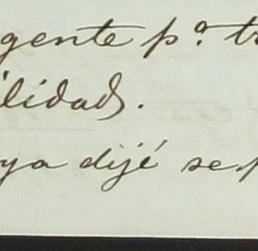 gente p.ª tr
ilidad.
ya dijé se p